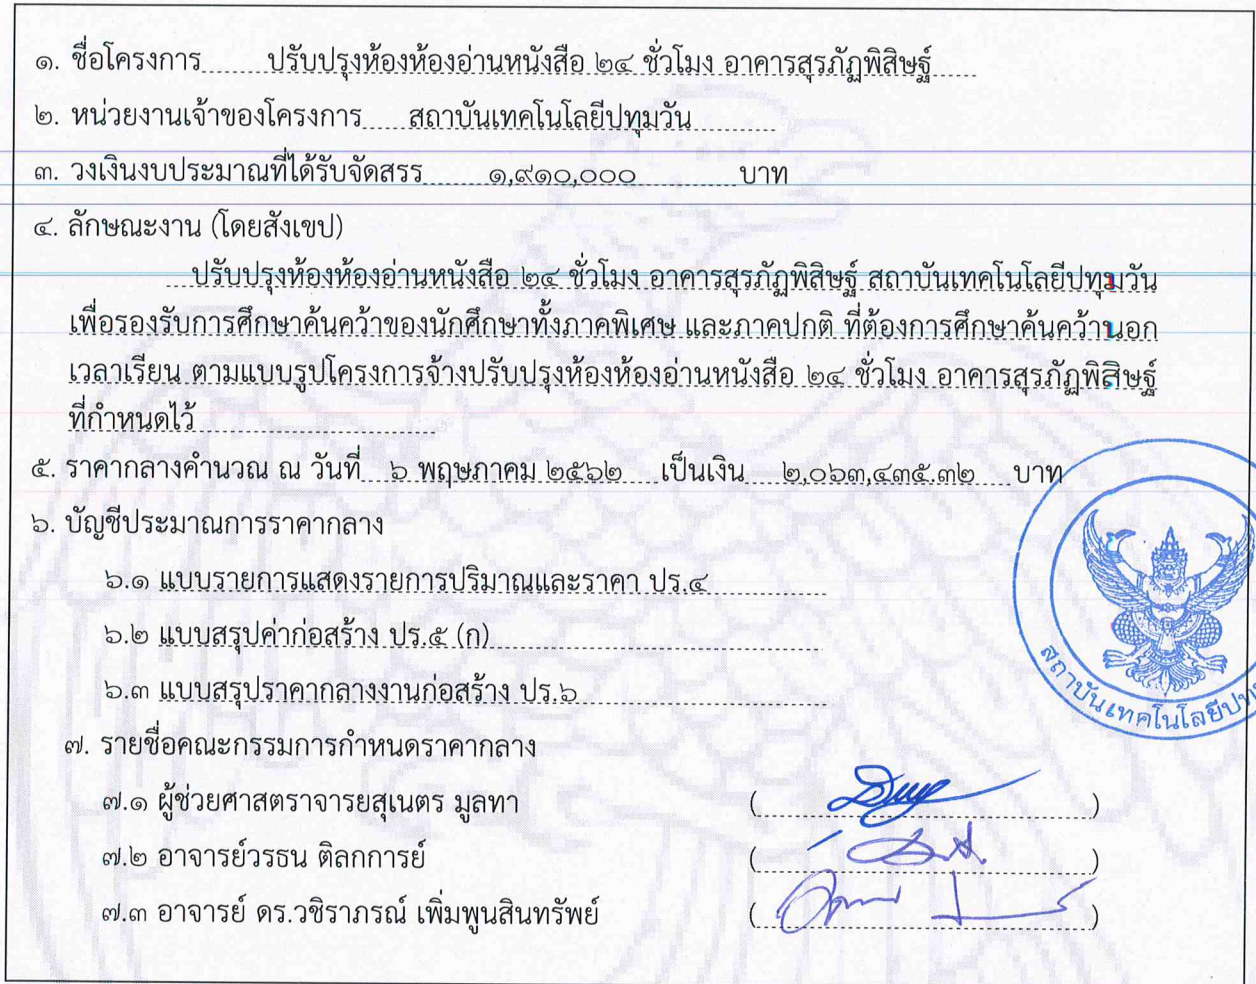 ๑. ชื่อโครงการ ปรับปรุงห้องห้องอ่านหนังสือ ๒๔ ชั่วโมง อาคารสุรภัฏพิสิษฐ์
๒. หน่วยงานเจ้าของโครงการ สถาบันเทคโนโลยีปทุมวัน
๓. วงเงินงบประมาณที่ได้รับจัดสรร ๑,๙๑๐,๐๐๐ บาท
๔. ลักษณะงาน (โดยสังเขป)
ปรับปรุงห้องห้องอ่านหนังสือ ๒๔ ชั่วโมง อาคารสุรภัฏพิสิษฐ์ สถาบันเทคโนโลยีปทุมวัน
เพื่อรองรับการศึกษาค้นคว้าของนักศึกษาทั้งภาคพิเศษ และภาคปกติ ที่ต้องการศึกษาค้นคว้านอก
เวลาเรียน ตามแบบรูปโครงการจ้างปรับปรุงห้องห้องอ่านหนังสือ ๒๔ ชั่วโมง อาคารสุรภัฏพิสิษฐ์
ที่กำหนดไว้
๕. ราคากลางคำนวณ ณ วันที่ ๖ พฤษภาคม ๒๕๖๒ เป็นเงิน ๒,๐๖๓,๔๓๕.๓๒ บาท
๖. บัญชีประมาณการราคากลาง
๖.๑ แบบรายการแสดงรายการปริมาณและราคา ปร.๔
๖.๒ แบบสรุปค่าก่อสร้าง ปร.๕ (ก)
๖.๓ แบบสรุปราคากลางงานก่อสร้าง ปร.๖
สถาบันเทคโนโลยีปทุ
๗. รายชื่อคณะกรรมการกำหนดราคากลาง
๗.๑ ผู้ช่วยศาสตราจารยสุเนตร มูลทา ( )
๗.๒ อาจารย์วรธน ติลกการย์ ( )
๗.๓ อาจารย์ ดร.วชิราภรณ์ เพิ่มพูนสินทรัพย์ ( )